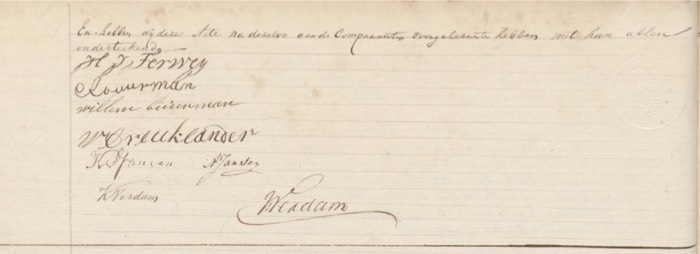 En hebben wij deze Acte na dezelve aan de Comparanten voorgelezen te hebben met hun allen
onderteekend.
H J Terwey
Buurman
Willem Buurman
W Kreuklander
H Jansen A Jansen
K Verdam Werdam